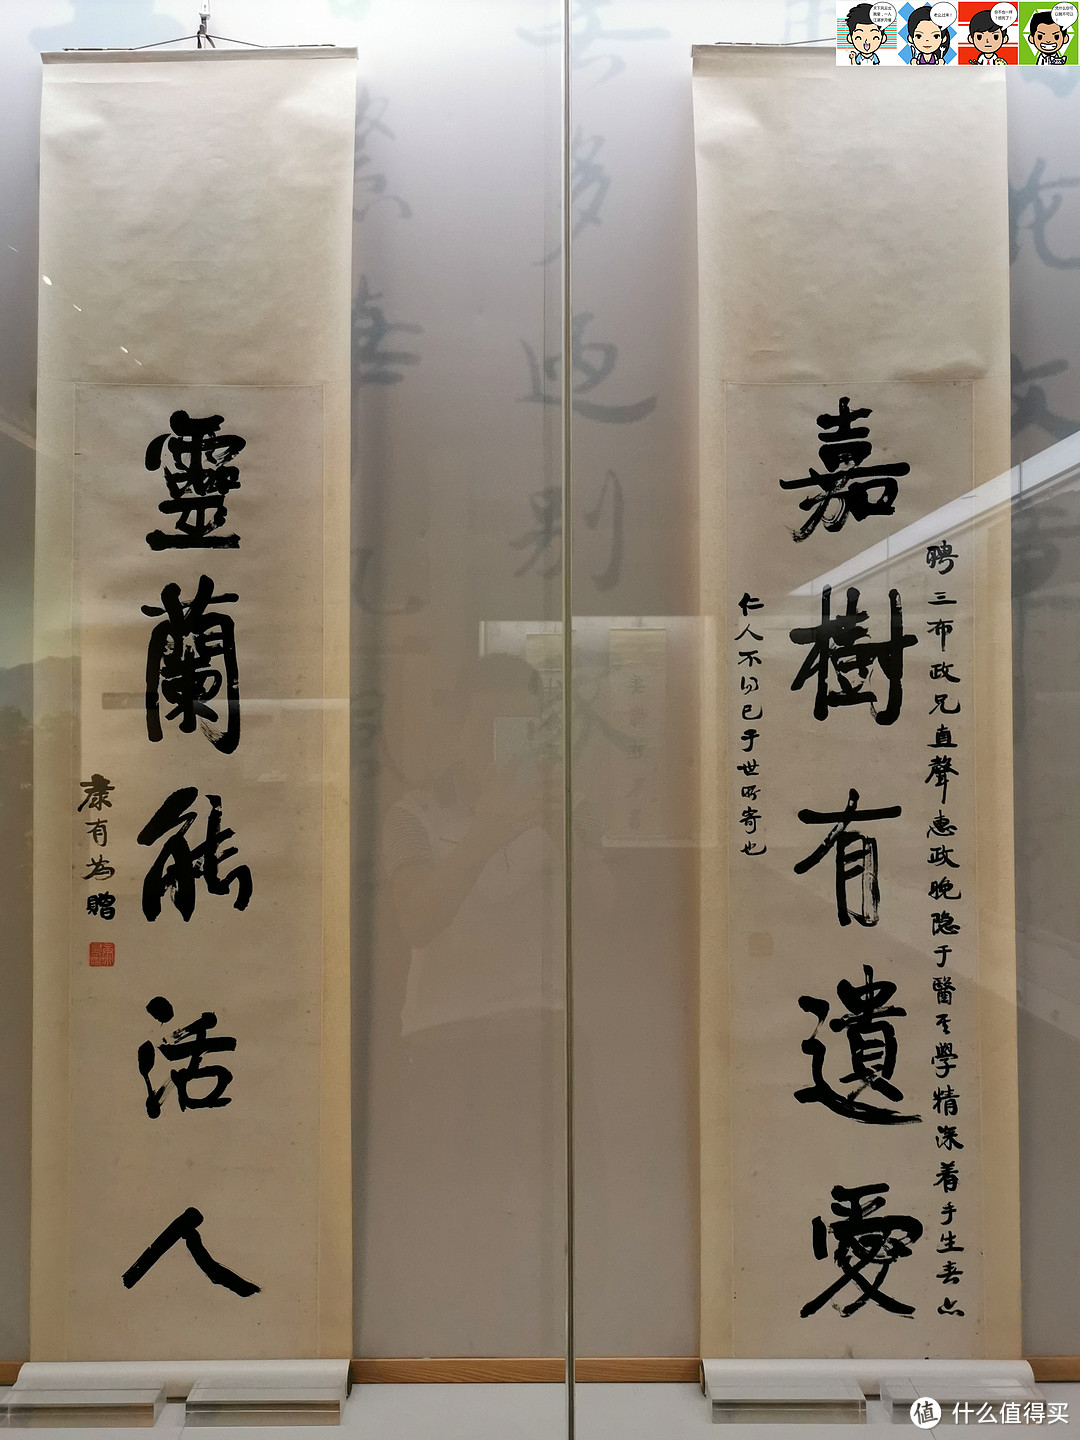 嘉樹有遺愛
聘三布政兄直聲惠政晚隐于醫至學精深着手生春亦
仁人不得已于世所寄也
靈蘭能活人
康有为贈
老公过来！
值 什么值得买